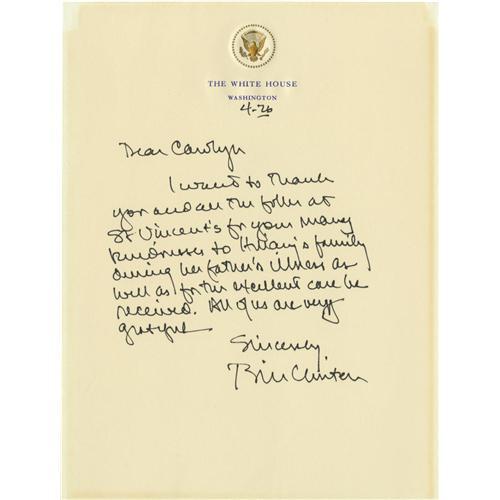 THE WHITE HOUSE
WASHINGTON
4-26
Dear Carolyn
I want to thank
you and all the folks at
St Vincent's for your many
kindnesses to Hillary's family
during her father's illness as
well as for the excellent care he
received. All of us are very
grateful.
Sincerely
Bill Clinton